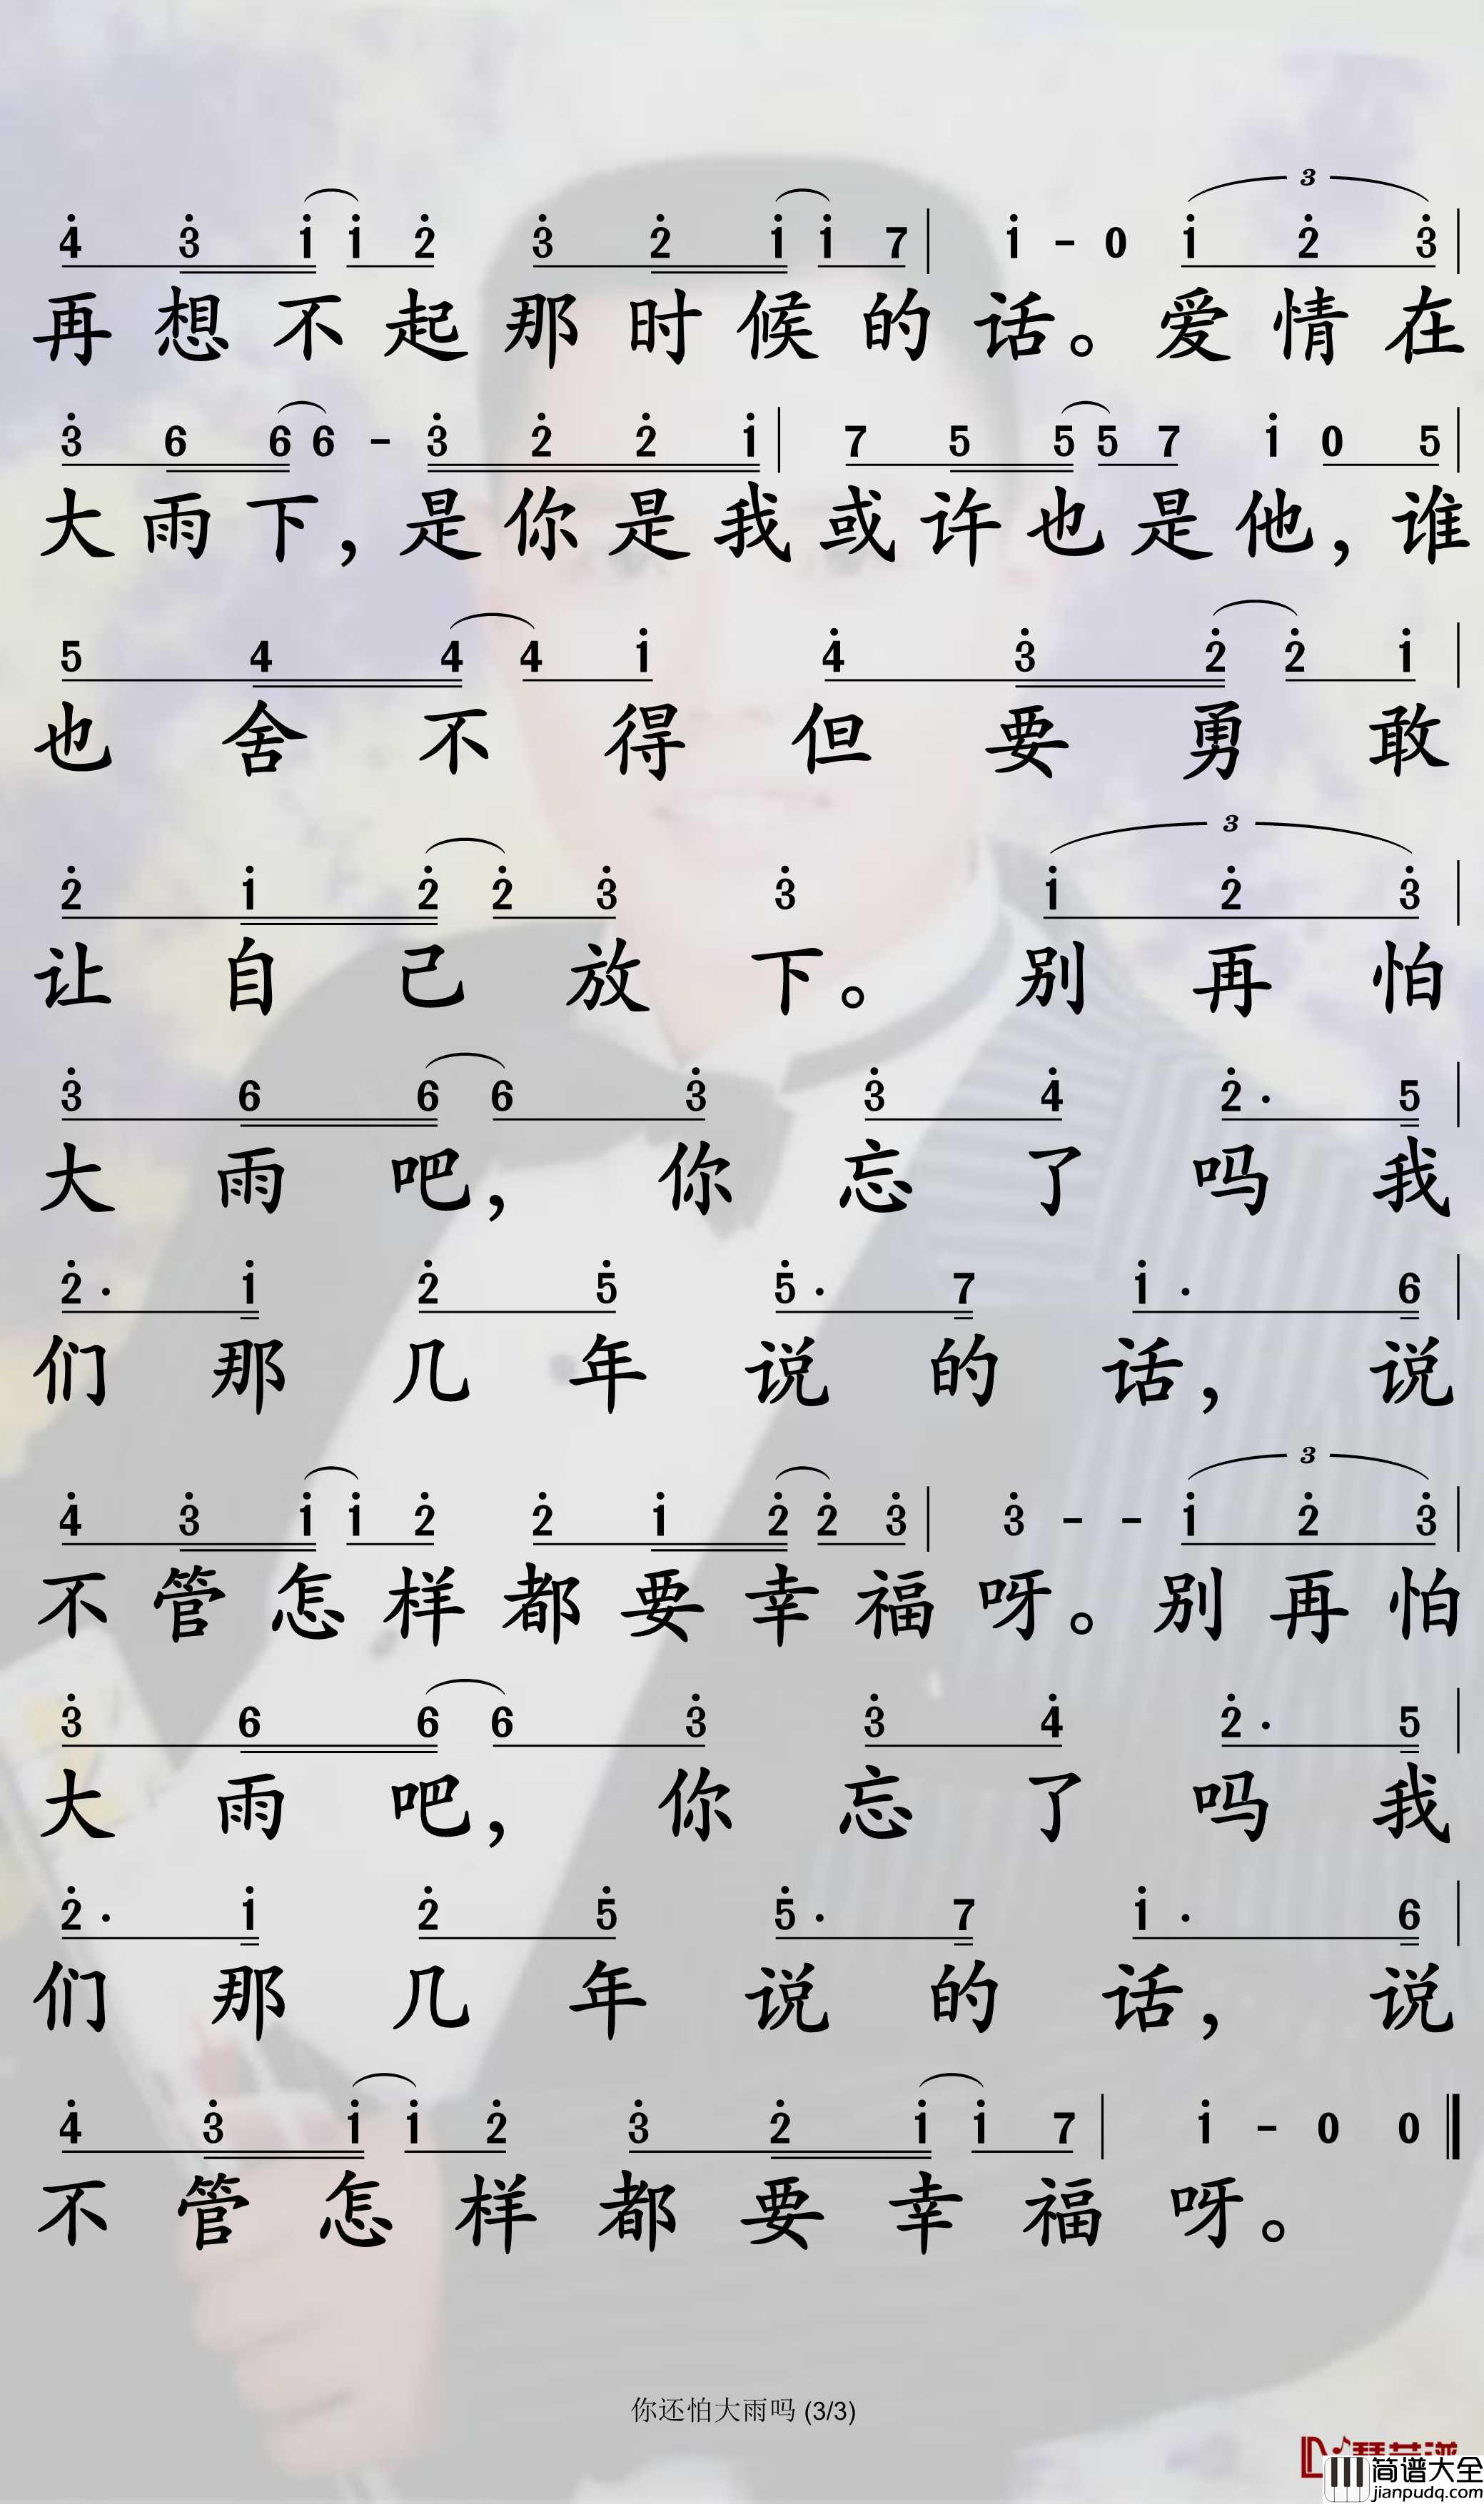 4 3 1 1 2 3 2 1 1 7 | 1 - 0 1 2 3 |
3
再想不起那时候的话。爱情在
3 6 6 6 - 3 2 2 1 | 7 5 5 5 7 1 0 5 |
大雨下，是你是我或许也是他，谁
5 4 4 4 1 4 3 2 2 1 |
也舍不得但要勇敢
2 1 2 2 3 3 1 2 3 |
3
让自己放下。别再怕
3 6 6 6 3 3 4 2· 5 |
大雨吧，你忘了吗我
2· 1 2 5 5· 7 1· 6 |
们那几年说的话，说
4 3 1 1 2 2 1 2 2 3 | 3 - - 1 2 3 |
3
不管怎样都要幸福呀。别再怕
3 6 6 6 3 3 4 2· 5 |
大雨吧，你忘了吗我
2· 1 2 5 5· 7 1· 6 |
们那几年说的话，说
4 3 1 1 2 3 2 1 1 7 | 1 - 0 0 ‖
不管怎样都要幸福呀。
你还怕大雨吗 (3/3)
简谱大全
jianpudq.com